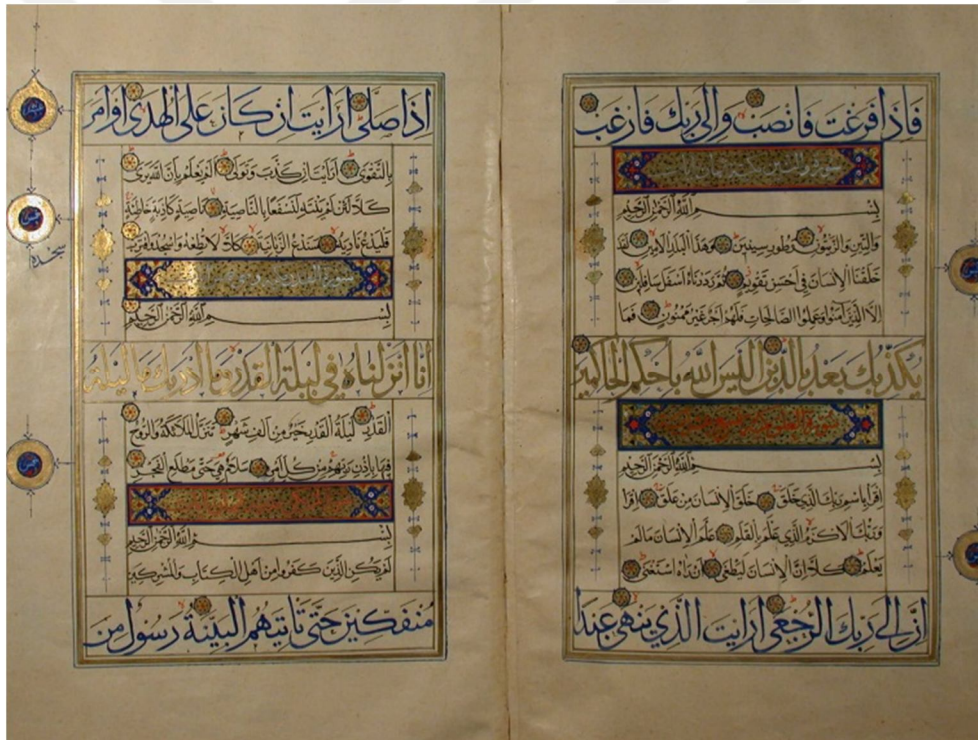 فاذا فرغت فانصب والى ربك فارغب
بسم الله الرحمن الرحيم
والتين والزيتون وطور سينين وهذا البلد الامين لقد
خلقنا الانسان في احسن تقويم ثم رددناه اسفل سافلين
الا الذين آمنوا وعملوا الصالحات فلهم اجر غير ممنون فما
يكذبك بعد بالدين اليس الله باحكم الحاكمين
بسم الله الرحمن الرحيم
اقرا باسم ربك الذي خلق خلق الانسان من علق اقرا
وربك الاكرم الذي علم بالقلم علم الانسان مالم
يعلم كلا ان الانسان ليطغى ان راه استغنى
ان الى ربك الرجعى ارايت الذي ينهى عبدا
اذا صلى ارايت ان كان على الهدى او امر
بالتقوى ارايت ان كذب وتولى الم يعلم بان الله يرى
كلا لئن لم ينته لنسفعا بالناصية ناصية كاذبة خاطئة
فليدع ناديه سندع الزبانية كلا لا تطعه واسجد واقترب
سجده
بسم الله الرحمن الرحيم
انا انزلناه في ليلة القدر وما ادريك ما ليلة
القدر ليلة القدر خير من الف شهر تنزل الملائكة والروح
فيها باذن ربهم من كل امر سلام هي حتى مطلع الفجر
بسم الله الرحمن الرحيم
لم يكن الذين كفروا من اهل الكتاب والمشركين
منفكين حتى تاتيهم البينة رسول من